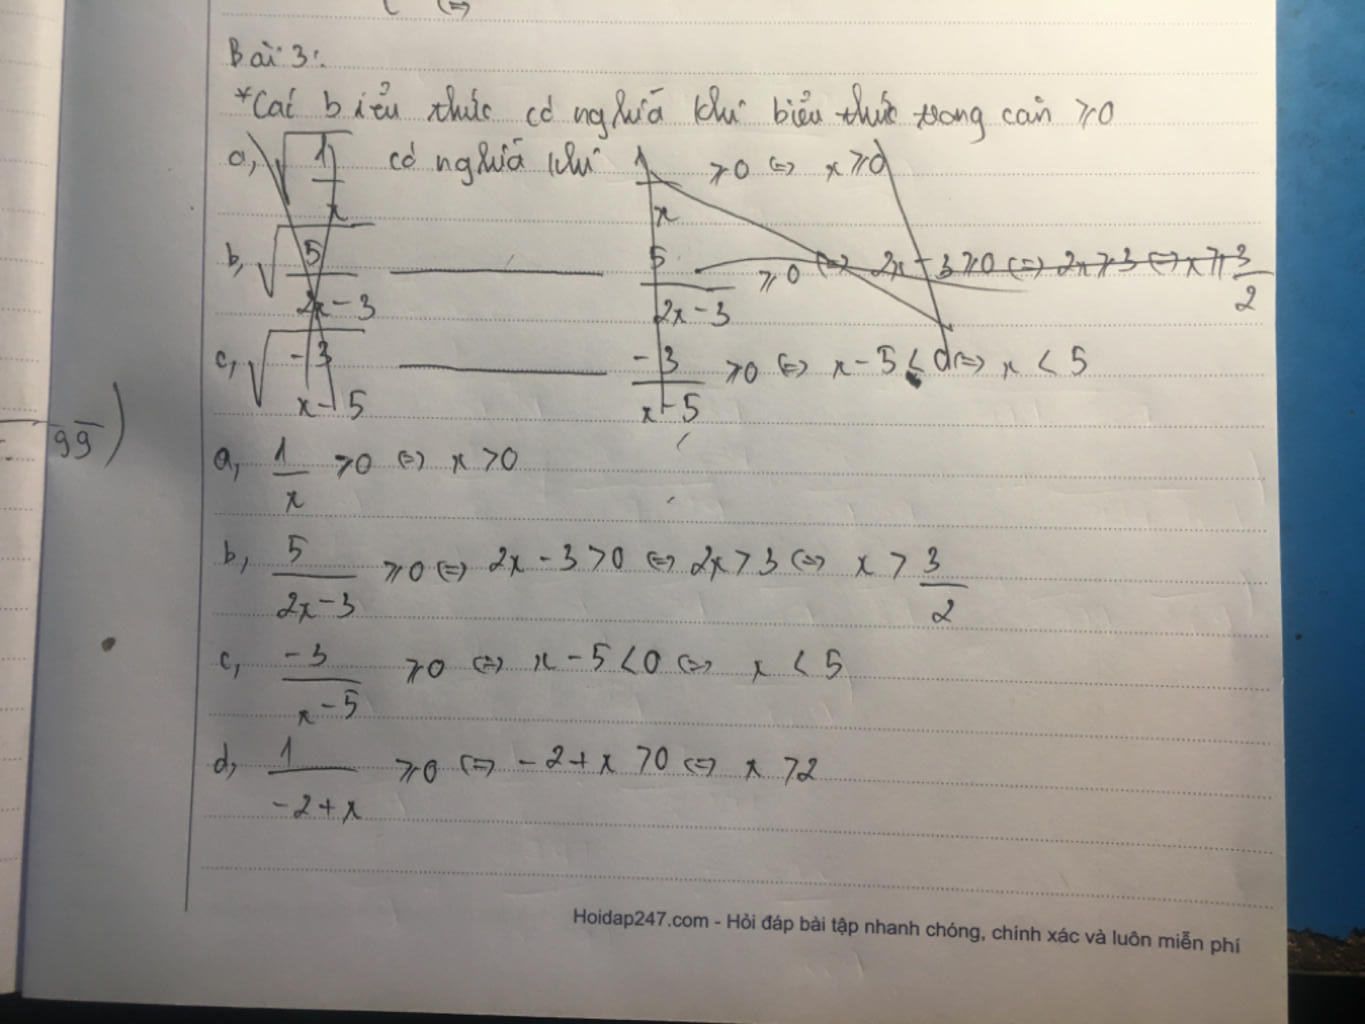 (⇒
Bài 3:
*Các biểu thức có nghĩa khi biểu thức trong căn ≥0
a, √(1/x) có nghĩa khi 1/x ≥0 ⇔ x ≥0
b, √(5/(2x-3)) ——— 5/(2x-3) ≥0 ⇔ 2x-3≥0 ⇔ 2x≥3 ⇔ x≥ 3/2
c, √(-3/(x-5)) ——— -3/(x-5) ≥0 ⇔ x-5 < 0 ⇔ x < 5
99)
a, 1/x ≥0 ⇔ x >0
b, 5/(2x-3) ≥0 ⇔ 2x-3>0 ⇔ 2x>3 ⇔ x > 3/2
c, -3/(x-5) ≥0 ⇔ x-5<0 ⇔ x < 5
d, 1/(-2+x) ≥0 ⇔ -2+x >0 ⇔ x >2
Hoidap247.com - Hỏi đáp bài tập nhanh chóng, chính xác và luôn miễn phí